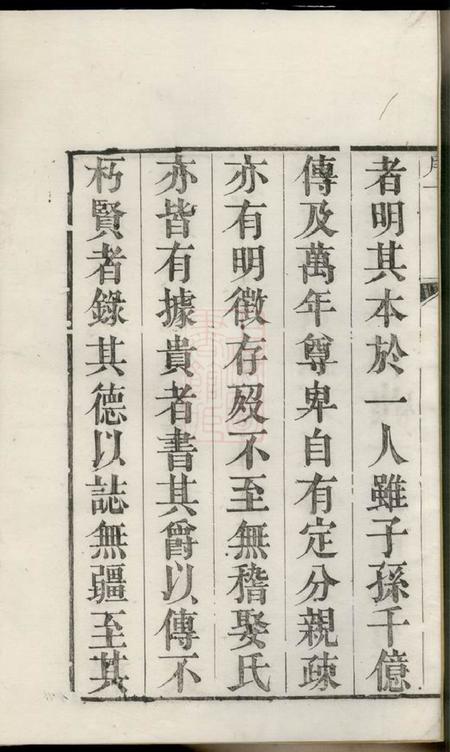 者明其本於一人雖子孫千億
傳及萬年尊卑自有定分親疎
亦有明徵存歿不至無稽娶氏
亦皆有據貴者書其爵以傳不
朽賢者錄其德以誌無疆至其